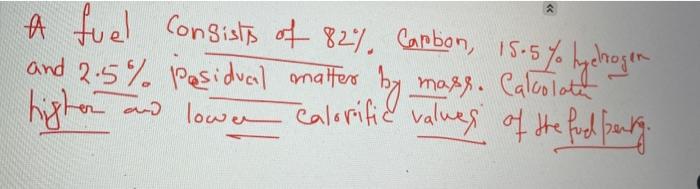 A fuel Consists of 82%. Carbon, 15.5% hydrogen
and 2.5%. Residual matter by mass. Calculate
higher and lower Calorific values of the fuel per kg.